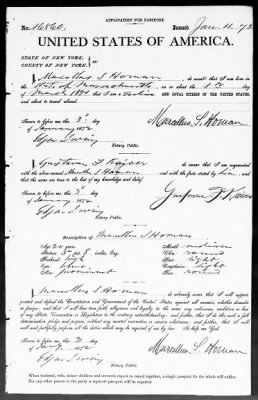 APPLICATION FOR PASSPORT.
No. 16860. Issued Jan. 4. 72
UNITED STATES OF AMERICA.
STATE OF NEW YORK,
COUNTY OF NEW YORK.
I, Marcellus S Homan do swear that I was born in
the State of Massachusetts, on or about the
AND LOYAL CITIZEN OF THE UNITED STATES,
and about to travel abroad.
Sworn to before me this 3d
of January 1872
Edgar Irving
Notary Public.
Marcellus S. Homan
I, Gustave
with the above named Marcellus S Homan
that the same are true to the best of my knowledge and belief.
Sworn to before me this 3d
of January 1872
Edgar Irving
Notary Public.
Description of Marcellus S Homan
Age 20 years
Stature 5 feet 8 inches, Eng.
Forehead high
Eyes blue
Nose prominent
Mouth medium
Chin round
Hair light
Complexion light
Face round
I, Marcellus S Homan do solemnly swear that I will support,
protect and defend the Constitution and Government of the United States against all enemies, whether domestic
or foreign; and that I will bear true faith, allegiance and loyalty to the same, any ordinance, resolution or law
of any State Convention or Legislature to the contrary notwithstanding; and further, that I do this with a full
determination, pledge and purpose, without any mental reservation or evasion whatsoever; and further, that I will
well and faithfully perform all the duties which may be required of me by law. So help me God.
Sworn to before me this 3d
of Jany 1872
Edgar Irving
Notary Public.
Marcellus S. Homan
When husband, wife, minor children and servants expect to travel together, a single passport for the whole will suffice.
For any other person in the party a separate passport will be required.